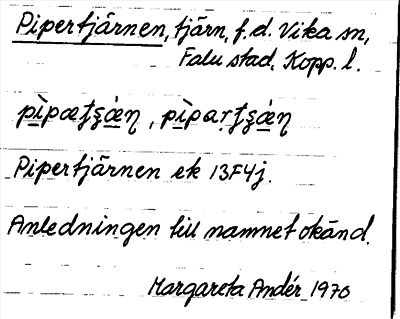 Pipertjärnen, tjärn, f.d. Vika sn,
Falu stad, Kopp. l.
Pipertjärnen ek 13F4j.
Anledningen till namnet okänd.
Margareta Andér 1970